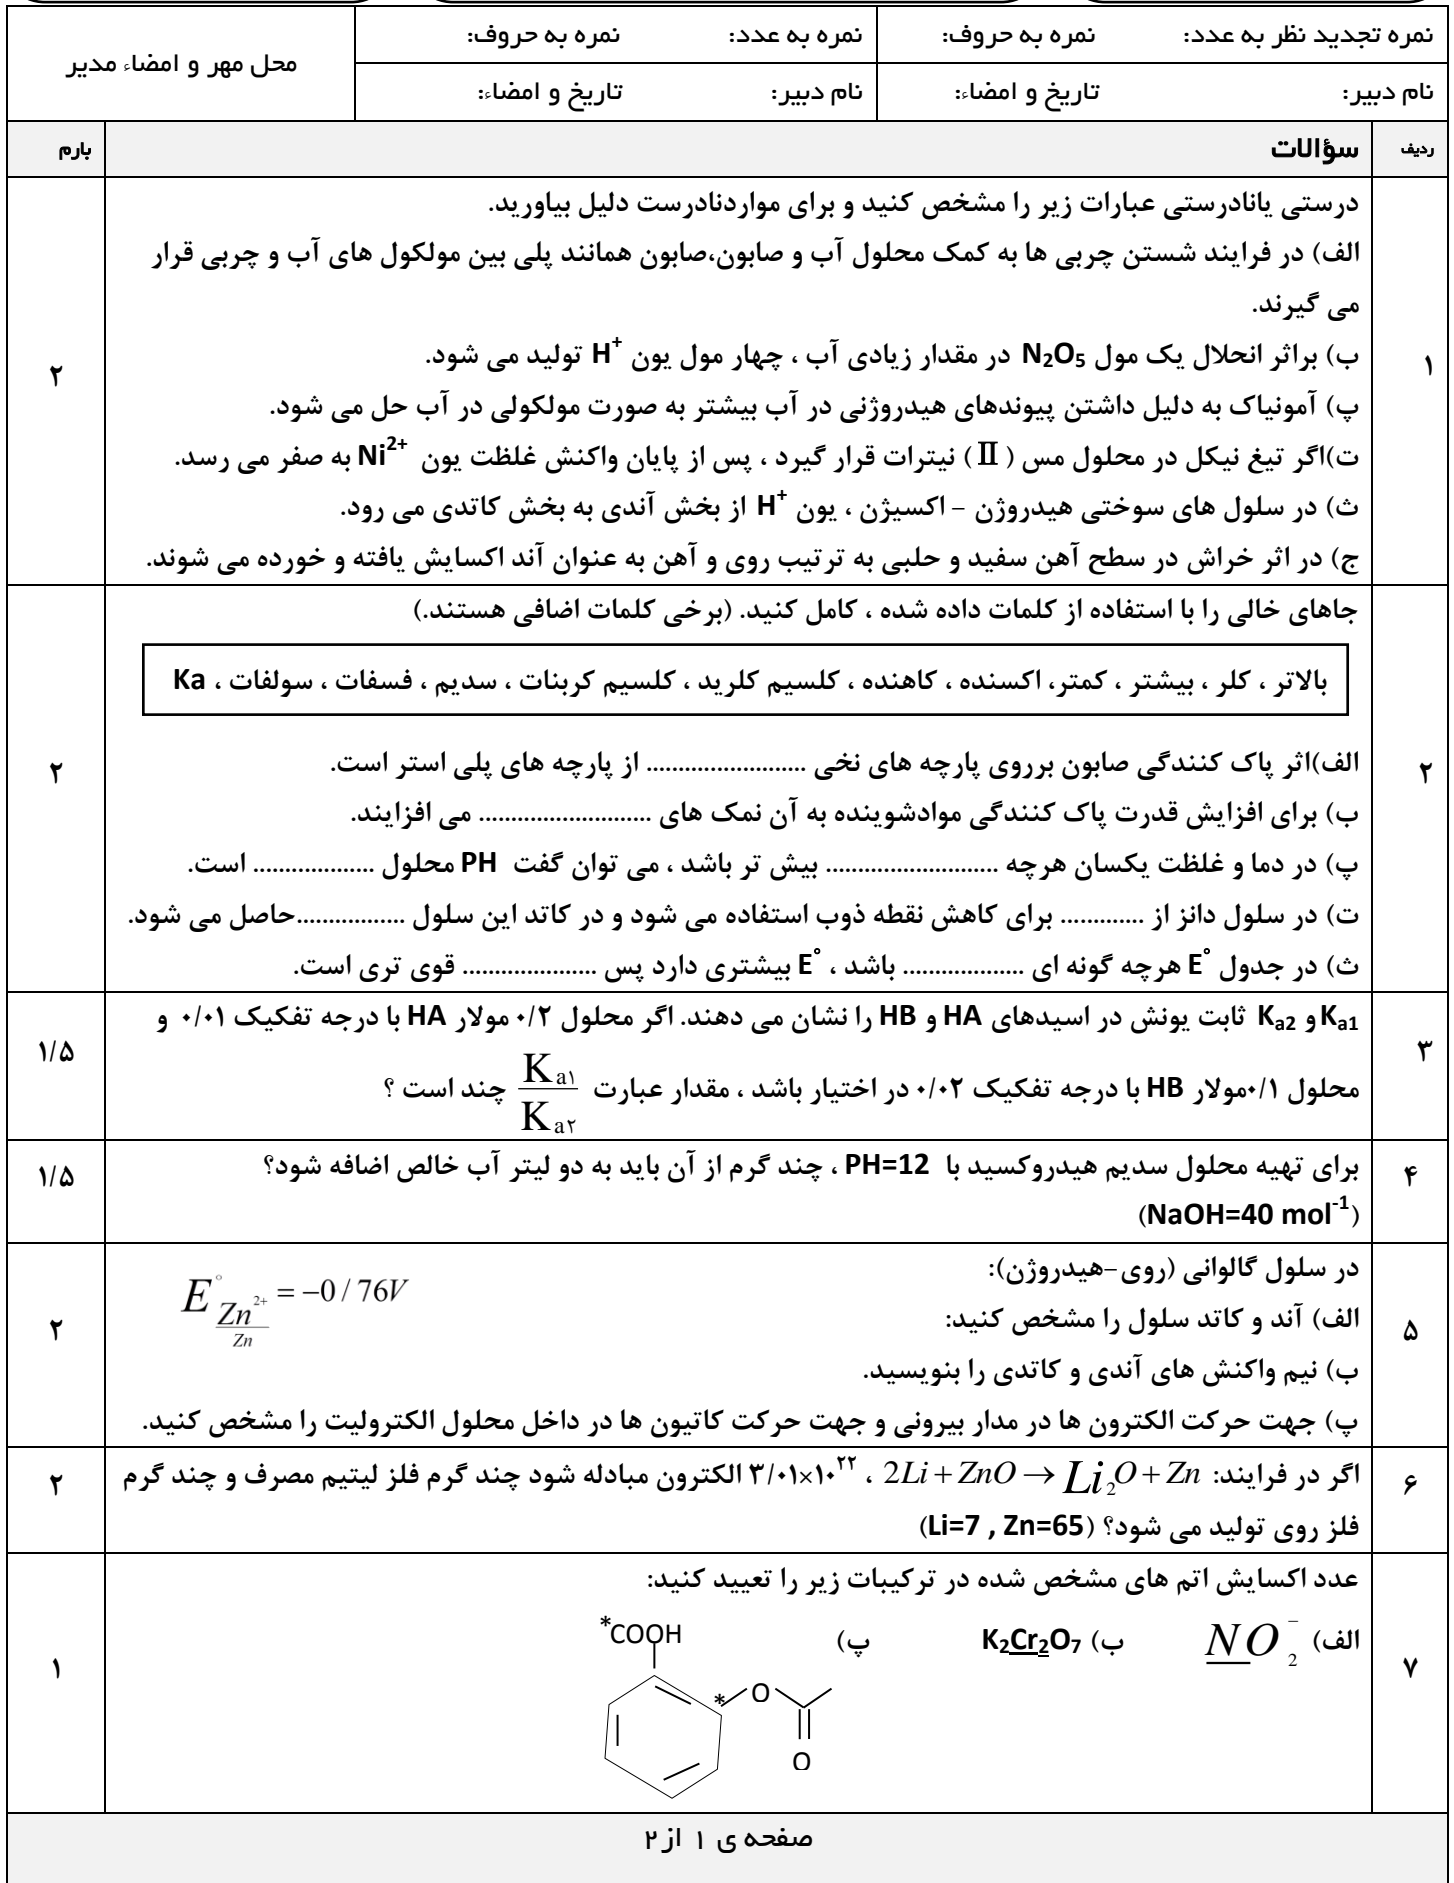 نمره تجدید نظر به عدد: نمره به حروف: نمره به عدد: نمره به حروف: محل مهر و امضاء مدیر
نام دبیر: تاریخ و امضاء: نام دبیر: تاریخ و امضاء:
ردیف سؤالات بارم
۱ ۲
درستی یانادرستی عبارات زیر را مشخص کنید و برای مواردنادرست دلیل بیاورید.
الف) در فرایند شستن چربی ها به کمک محلول آب و صابون،صابون همانند پلی بین مولکول های آب و چربی قرار
می گیرند.
ب) براثر انحلال یک مول N₂O₅ در مقدار زیادی آب ، چهار مول یون H⁺ تولید می شود.
پ) آمونیاک به دلیل داشتن پیوندهای هیدروژنی در آب بیشتر به صورت مولکولی در آب حل می شود.
ت)اگر تیغ نیکل در محلول مس ( II ) نیترات قرار گیرد ، پس از پایان واکنش غلظت یون Ni²⁺ به صفر می رسد.
ث) در سلول های سوختی هیدروژن – اکسیژن ، یون H⁺ از بخش آندی به بخش کاتدی می رود.
ج) در اثر خراش در سطح آهن سفید و حلبی به ترتیب روی و آهن به عنوان آند اکسایش یافته و خورده می شوند.
۲ ۲
جاهای خالی را با استفاده از کلمات داده شده ، کامل کنید. (برخی کلمات اضافی هستند.)
بالاتر ، کلر ، بیشتر ، کمتر، اکسنده ، کاهنده ، کلسیم کلرید ، کلسیم کربنات ، سدیم ، فسفات ، سولفات ، Ka
الف)اثر پاک کنندگی صابون برروی پارچه های نخی ......................... از پارچه های پلی استر است.
ب) برای افزایش قدرت پاک کنندگی موادشوینده به آن نمک های ........................... می افزایند.
پ) در دما و غلظت یکسان هرچه ........................... بیش تر باشد ، می توان گفت PH محلول ................... است.
ت) در سلول دانز از ............. برای کاهش نقطه ذوب استفاده می شود و در کاتد این سلول .................حاصل می شود.
ث) در جدول E° هرچه گونه ای ................... باشد ، E° بیشتری دارد پس ..................... قوی تری است.
۳ ۱/۵
Kₐ₁و Kₐ₂ ثابت یونش در اسیدهای HA و HB را نشان می دهند. اگر محلول ۰/۲ مولار HA با درجه تفکیک ۰/۰۱ و
محلول ۰/۱مولار HB با درجه تفکیک ۰/۰۲ در اختیار باشد ، مقدار عبارت Ka۱/Ka۲ چند است ؟
۴ ۱/۵
برای تهیه محلول سدیم هیدروکسید با PH=12 ، چند گرم از آن باید به دو لیتر آب خالص اضافه شود؟
(NaOH=40 mol⁻¹)
۵ ۲
در سلول گالوانی (روی-هیدروژن):
E° Zn²⁺/Zn = −0 / 76V
الف) آند و کاتد سلول را مشخص کنید:
ب) نیم واکنش های آندی و کاتدی را بنویسید.
پ) جهت حرکت الکترون ها در مدار بیرونی و جهت حرکت کاتیون ها در داخل محلول الکترولیت را مشخص کنید.
۶ ۲
اگر در فرایند: 2Li + ZnO → Li₂O + Zn ، ۳/۰۱×۱۰²² الکترون مبادله شود چند گرم فلز لیتیم مصرف و چند گرم
فلز روی تولید می شود؟ (Li=7 , Zn=65)
۷ ۱
عدد اکسایش اتم های مشخص شده در ترکیبات زیر را تعیید کنید:
الف) NO₂⁻ ب) K₂Cr₂O₇ پ)
*COOH
* O
O
صفحه ی ۱ از۲